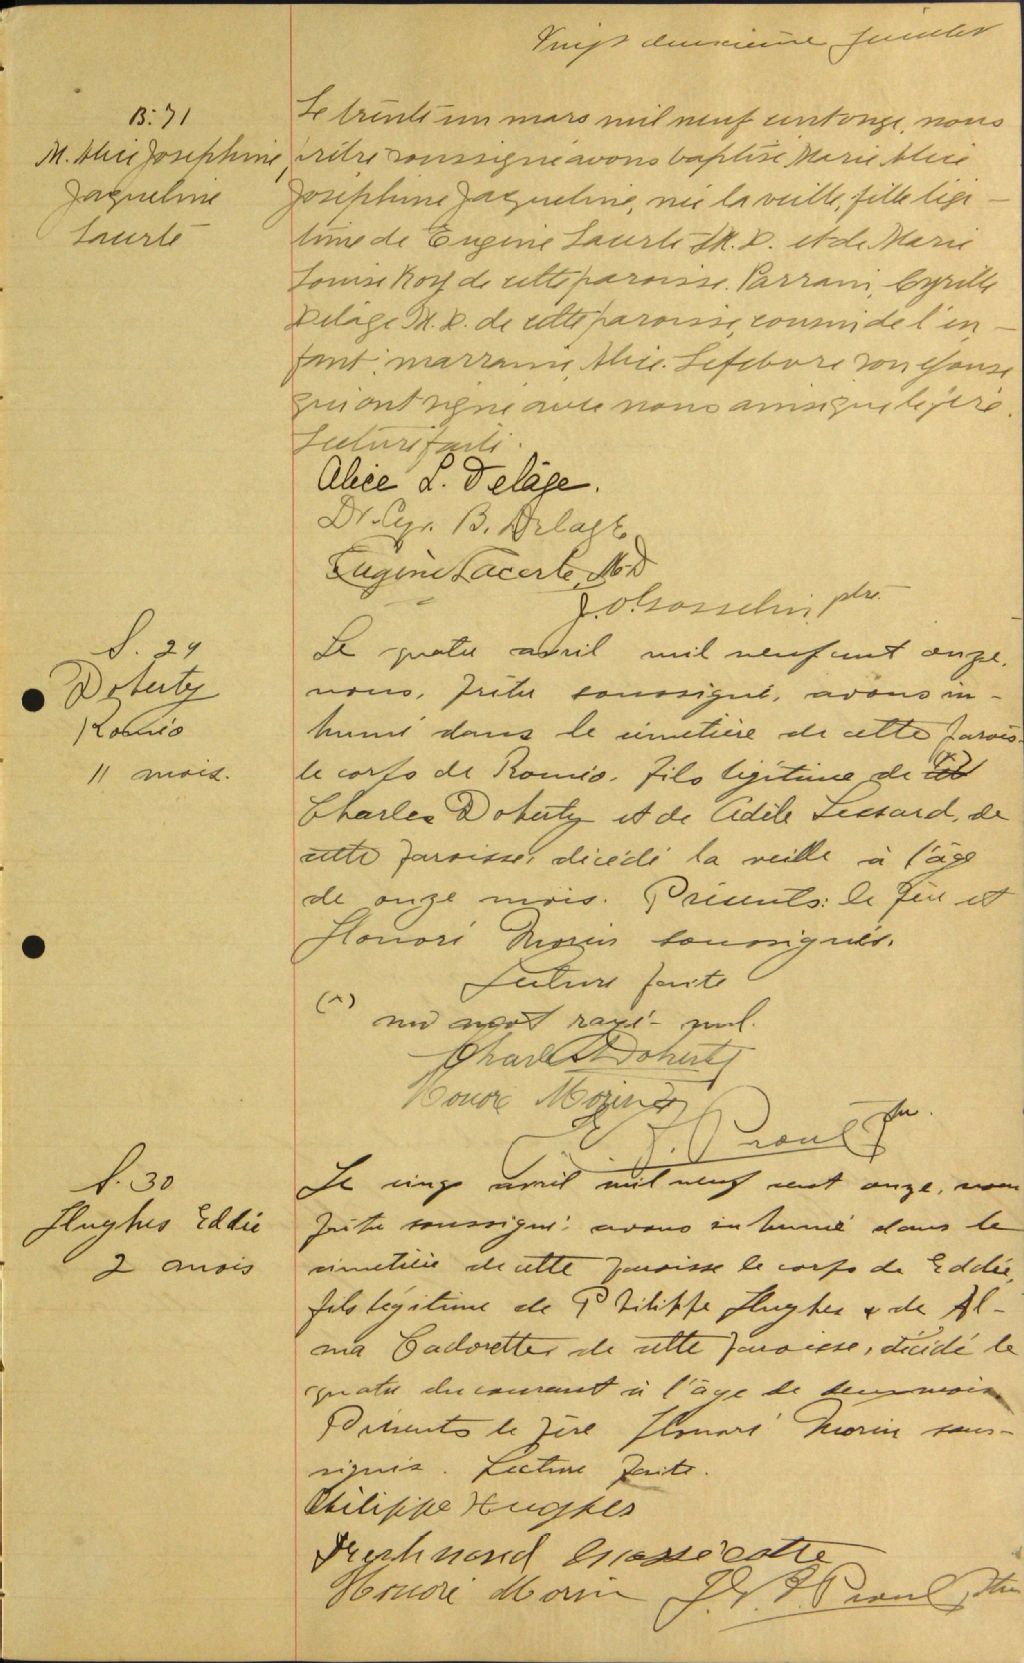 Vingt deuxième feuillet
B. 71
M. Alice Josephine,
Jaqueline
Lacerte
Le trente un mars mil neuf cent onze, nous
prêtre soussigné avons baptisé Marie Alice
Joséphine Jaqueline, née la veille, fille légi-
time de Eugène Lacerte M. D. et de Marie
Louise Roy de cette paroisse. Parrain, Cyrille
Delâge M. D. de cette paroisse, cousin de l'en-
fant; marraine, Alice Lefebvre son épouse
qui ont signé avec nous ainsi que le père.
Lecture faite.
Alice L. Delâge.
Dr. Cyr. B. Delage
Eugène Lacerte, M.D
J. O. Gosselin, ptre.
S. 29
Doherty
Roméo
11 mois.
Le quatre avril mil neuf cent onze,
nous, prêtre soussigné, avons in-
humé dans le cimetière de cette parois-
le corps de Roméo, fils légitime de
Charles Doherty et de Adèle Lessard, de
cette paroisse, décédé la veille à l'âge
de onze mois. Présents: le père et
Honoré Morin soussignés.
Lecture faite
(x) un mot rayé nul.
Charles Doherty
Honoré Morin
J. Proulx Ptre.
S. 30
Hughes Eddie
2 mois
Le cinq avril mil neuf cent onze, nous
prêtre soussigné, avons inhumé dans le
cimetière de cette paroisse le corps de Eddie,
fils légitime de Philippe Hughes & de Al-
ma Cadorette de cette paroisse, décédé le
quatre du courant à l'âge de deux mois.
Présents le père Honoré Morin sous-
signés. Lecture faite.
Philippe Hughes
Ferdinand Massicotte
Honoré Morin J. Proulx Ptre